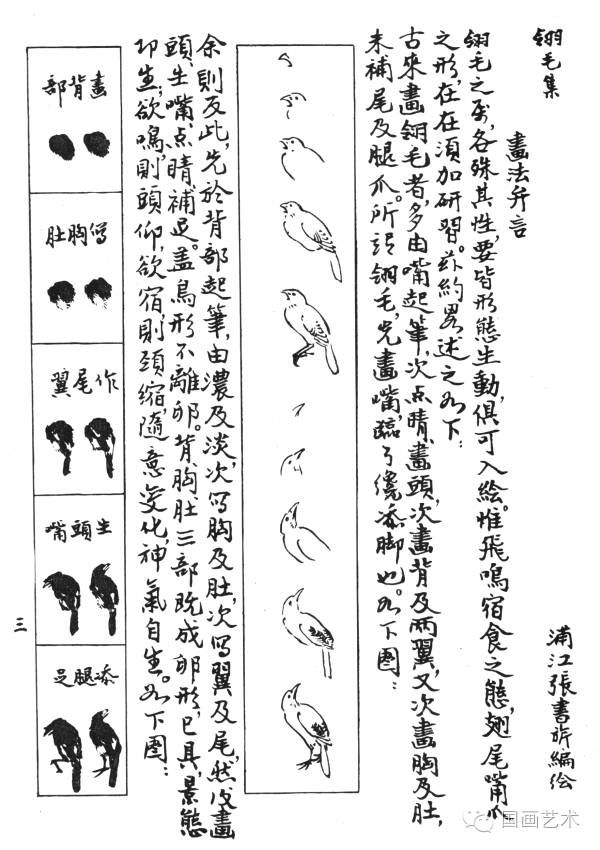 翎毛集
畫法弁言
浦江張書旂編绘
翎毛之属,各殊其性,要皆形態生動,俱可入绘。惟飛鳴宿食之態,翅尾嘴爪
之形,在在須加研習。兹約畧述之如下:
古來畫翎毛者,多由嘴起筆,次点睛,畫頭,次畫背及两翼,又次畫胸及肚,
末補尾及腿爪。所謂翎毛,先畫嘴,臨了纔添脚也。如下圖:
余則反此,先於背部起筆,由濃及淡,次写胸及肚,次写翼及尾,然後畫
頭,生嘴,点睛,補足。盖鳥形不離卵。背、胸、肚三部既成,卵形已具,景態
即生;欲鳴,則頭仰,欲宿,則頸缩,隨意变化,神氣自生。如下圖:
畫背部
写胸肚
作尾翼
生頭嘴
添腿足
三
国画艺术